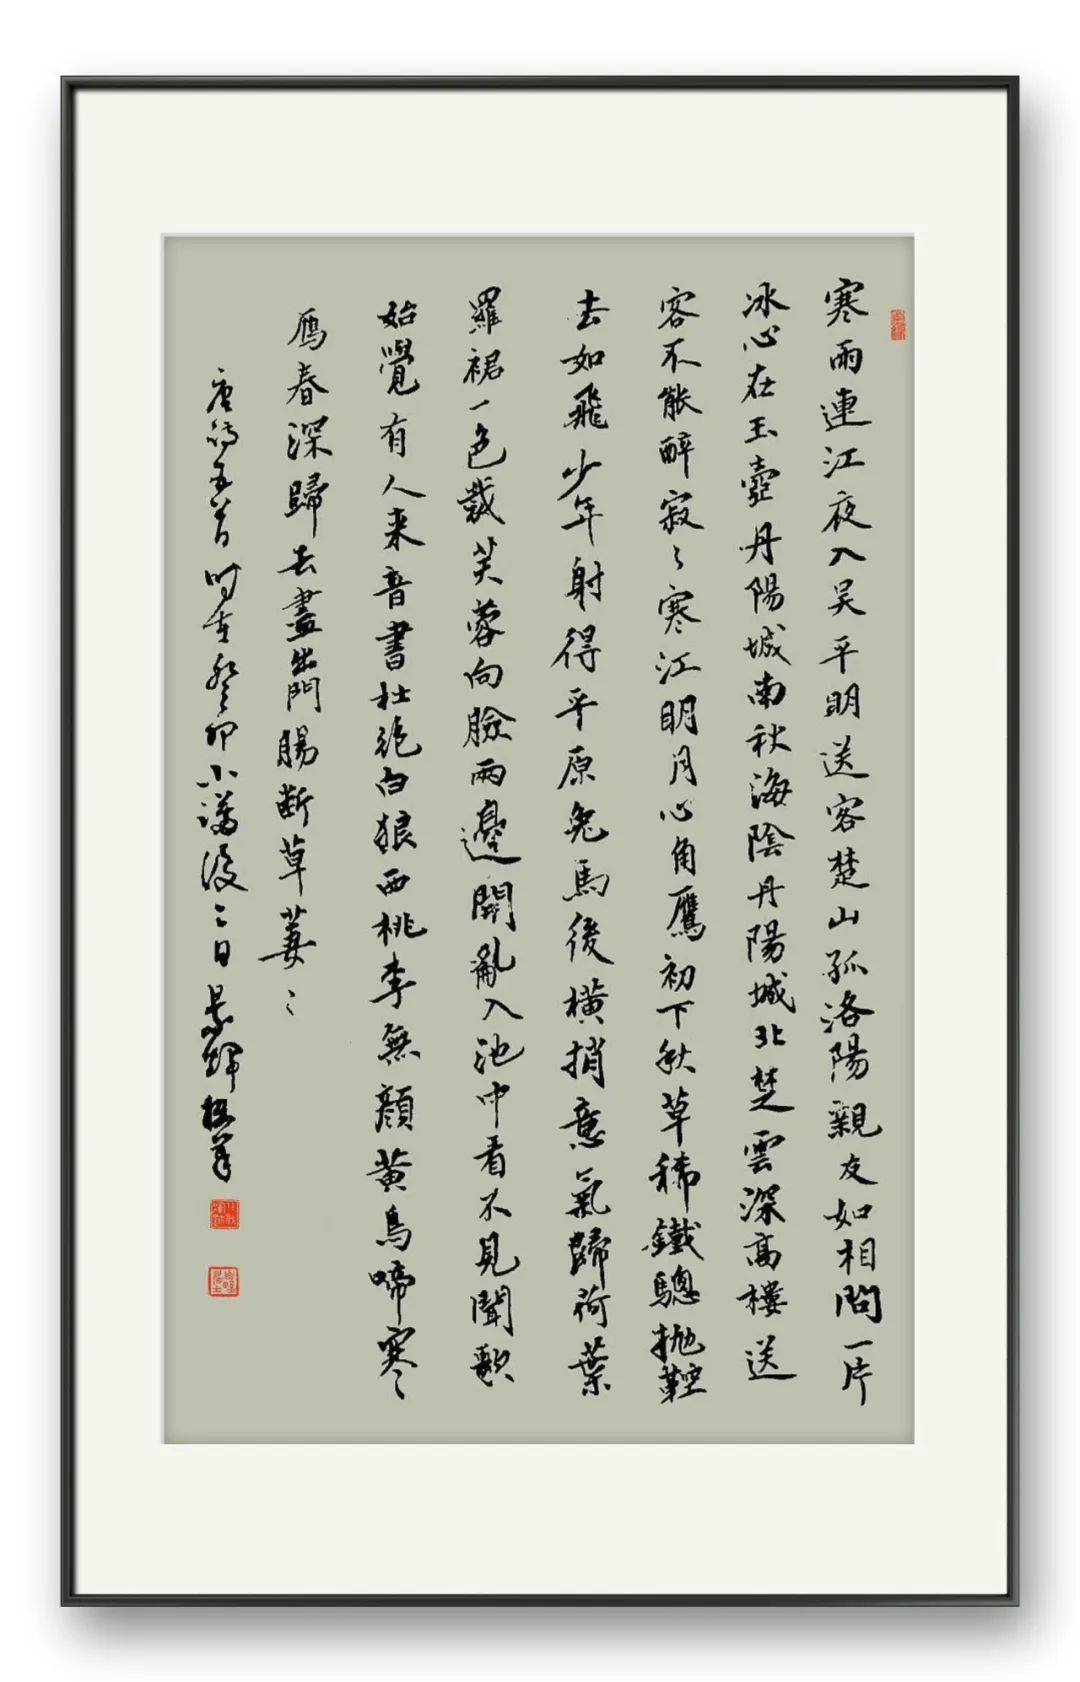 寒雨連江夜入吳平明送客楚山孤洛陽親友如相問一片
冰心在玉壺丹陽城南秋海陰丹陽城北楚雲深高樓送
客不能醉寂〻寒江明月心角鷹初下秋草稀鐵驄抛鞚
去如飛少年射得平原兔馬後橫捎意氣歸荷葉
羅裙一色裁芙蓉向臉兩邊開亂入池中看不見聞歌
始覺有人来音書杜絶白狼西桃李無顔黄鳥啼寒
鴈春深歸去盡出門腸断草萋〻
唐詩五首時在癸卯小滿後二日景輝